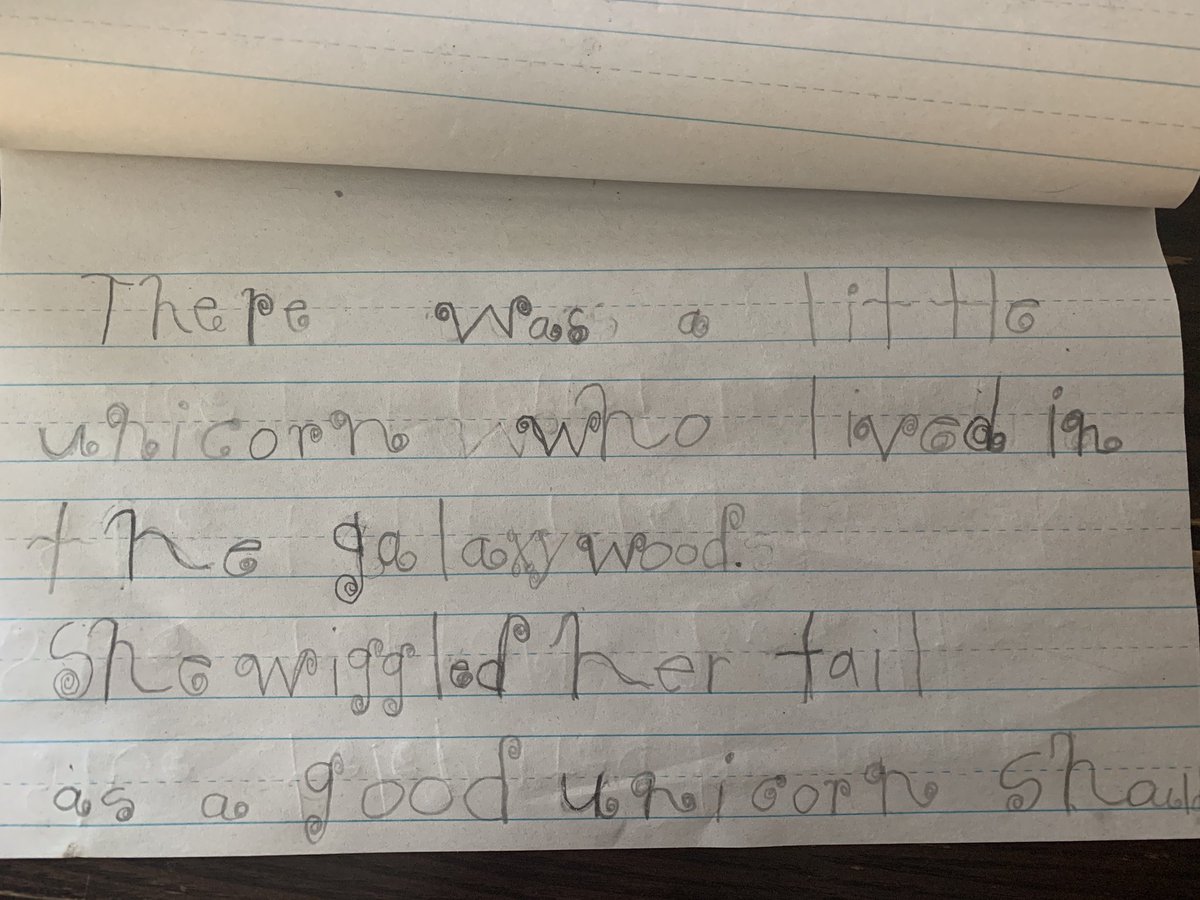 There was a little
unicorn who lived in
the galaxywood.
She wiggled her tail
as a good unicorn